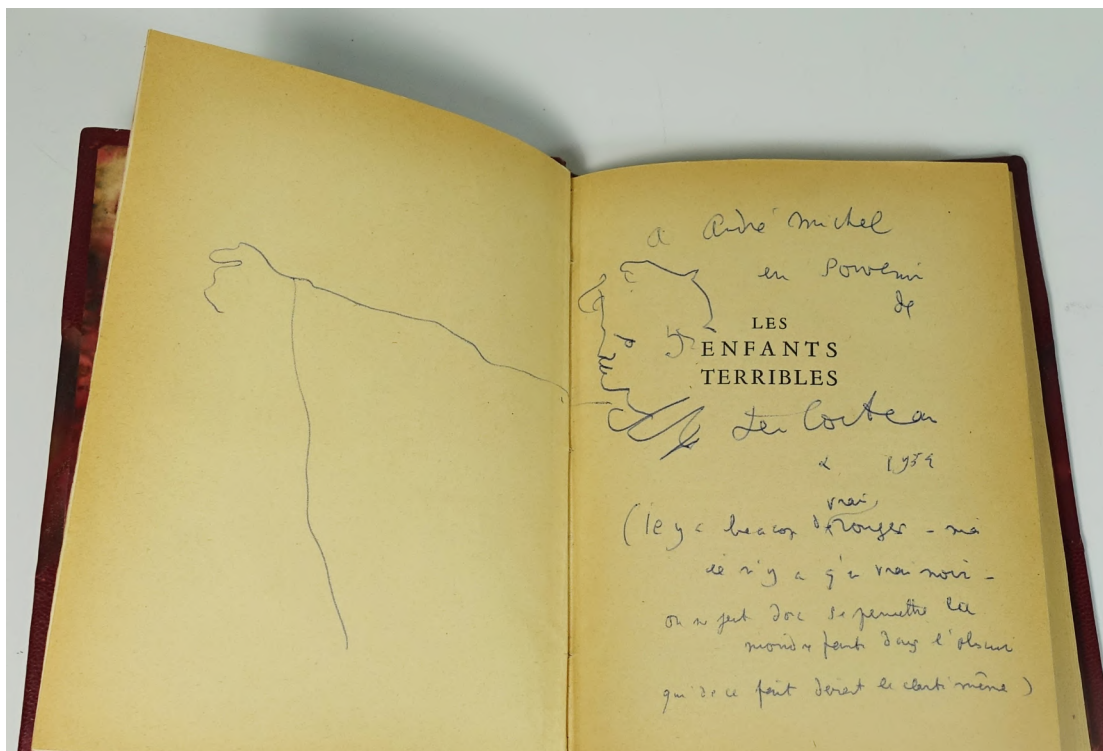 à André Michel
en souvenir
de
LES
ENFANTS
TERRIBLES
Jean Cocteau
1954
(il y a beaucoup de vrais rouges - mais
il n'y a qu'un vrai noir -
on ne peut donc se permettre la
moindre faute dans l'obscur
qui de ce fait devient la clarté même)